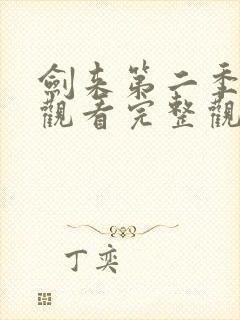 劍来第二季
觀看完整觀
丁奕